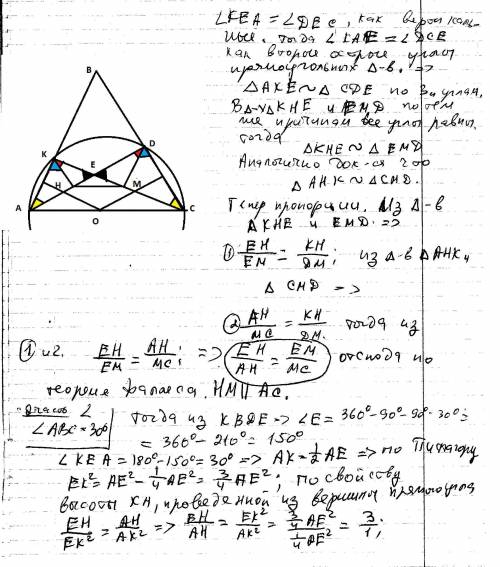 B
K
D
E
H
M
A
O
C
∠KEA = ∠DEC, как вертикаль-
ные. тогда ∠KAE = ∠DCE
как вторые острые углы
прямоугольных Δ-в. =>
ΔAKE ~ Δ CDE по 3м углам,
В Δ-х ΔKHE и EMD по тем
же причинам все углы равны.
тогда
ΔKHE ~ Δ EMD
Аналогично док-ся что
Δ AHK ~ Δ CMD.
Теперь пропорции. Из Δ-в
ΔKHE и EMD. =>
① EH/EM = KH/DM; из Δ-в ΔAHK и
Δ CMD =>
② AH/MC = KH/DM. тогда из
① и 2. EH/EM = AH/MC; => EH/AH = EM/MC отсюда по
теореме Фалеса HM || AC.
∠ABC = 30°
тогда из KBDE => ∠E = 360° - 90° - 90° - 30° =
= 360° - 210° = 150°
∠KEA = 180° - 150° = 30° => AK = 1/2 AE => по Пифагору
EK² = AE² - 1/4 AE² = 3/4 AE²; по свойству
высоты KH, проведенной из вершины прямого угла
EH/EK² = AH/AK² => EH/AH = EK²/AK² = 3/4 AE² / 1/4 AE² = 3/1;